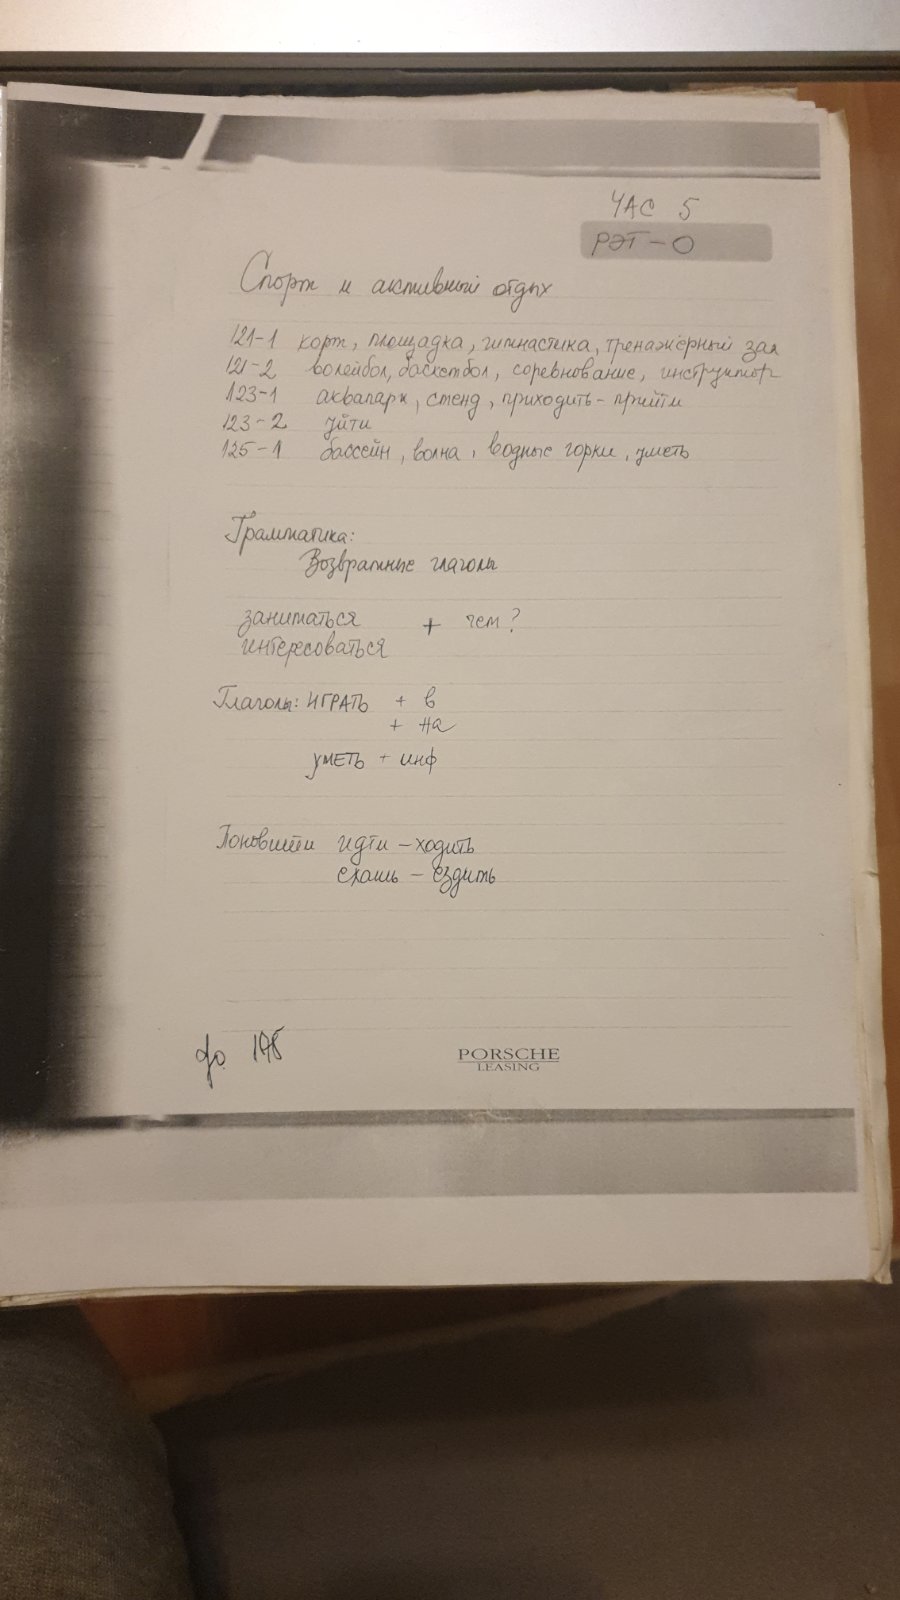 ЧАС 5
РЭТ - О
Спорт и активный отдых
121-1 корт, площадка, гимнастика, тренажерный зал
121-2 волейбол, баскетбол, соревнование, инструктор
123-1 аквапарк, стенд, приходить - прийти
123-2 уйти
125-1 бассейн, волна, водные горки, уметь
Грамматика:
Возвратные глаголы
заниматься + чем?
интересоваться
Глаголы: ИГРАТЬ + в
+ на
уметь + инф
идти - ходить
ехать - ездить
до
PORSCHE
LEASING